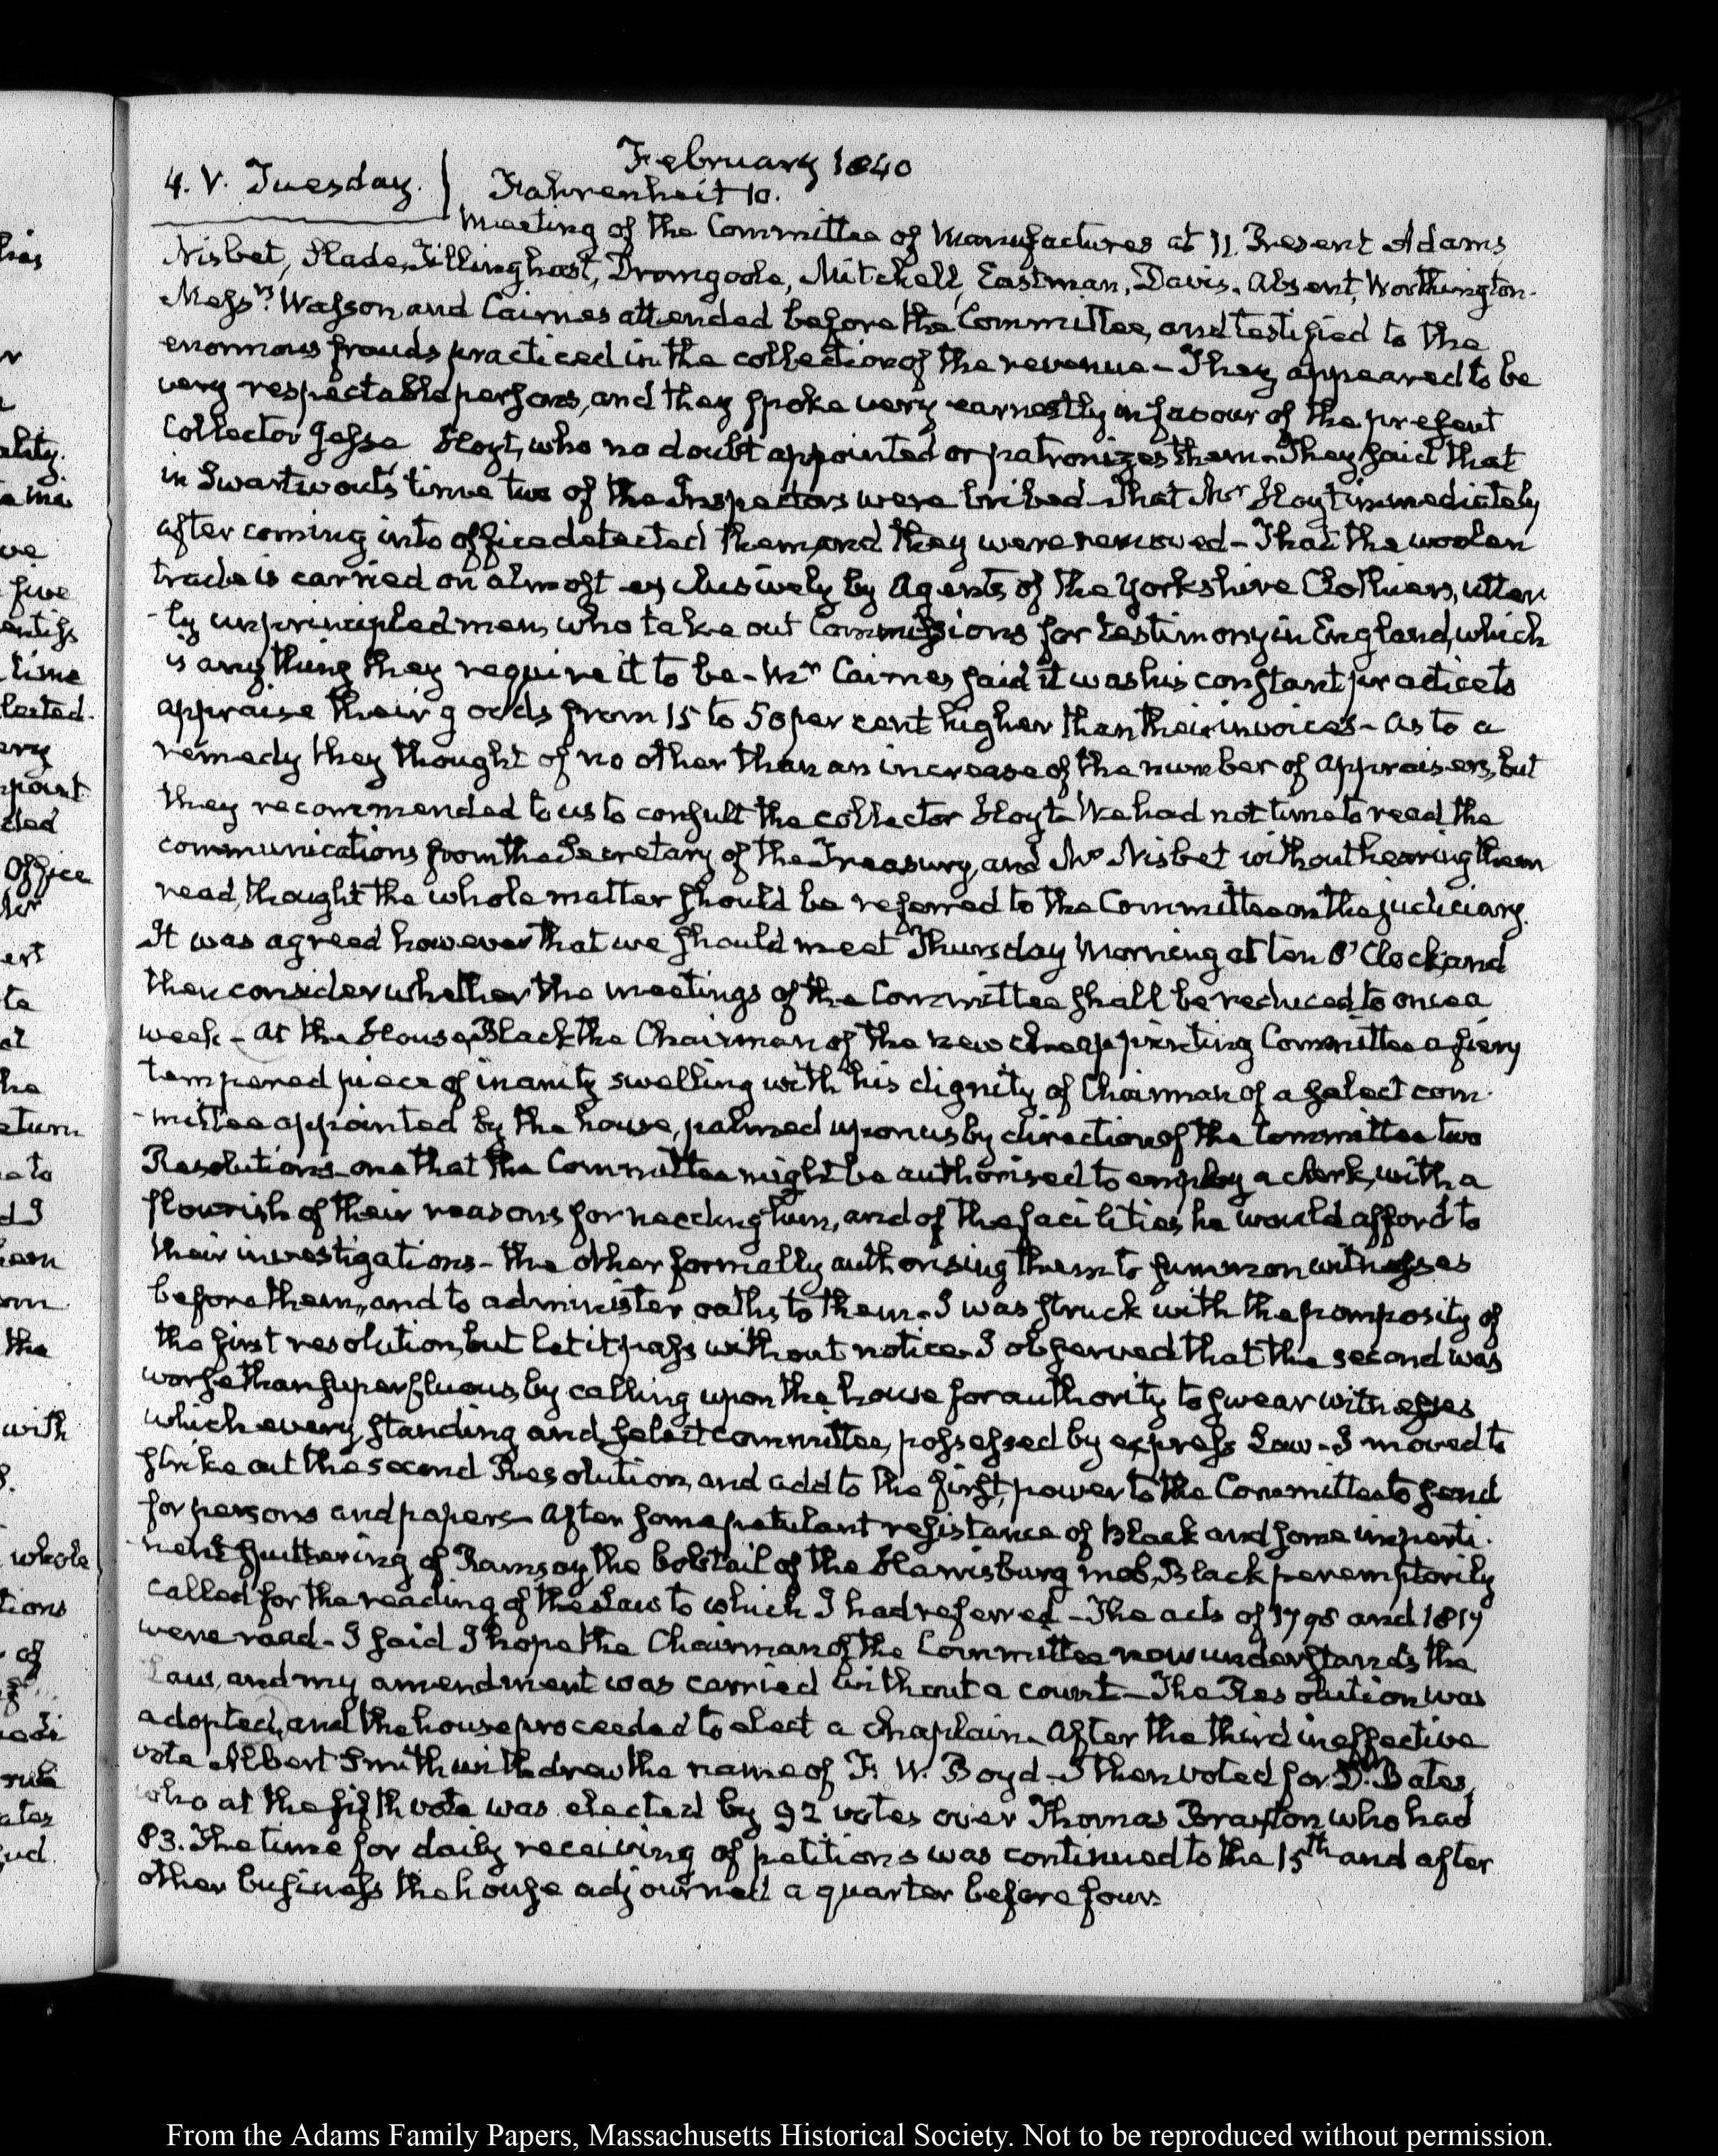 February 1840
4. V. Tuesday. Fahrenheit 10.
Meeting of the Committee of Manufactures at 11. Present Adams,
Nisbet, Slade, Tillinghast, Dromgoole, Mitchell, Eastman, Davis. Absent, Worthington.
Messrs. Wasson and Cairnes attended before the Committee, and testified to the
enormous frauds practiced in the collection of the revenue - They appeared to be
very respectable persons, and they spoke very earnestly in favour of the present
Collector Jesse Hoyt, who no doubt appointed or patronizes them - They said that
in Swartwout's time two of the Inspectors were bribed - That Mr Hoyt immediately
after coming into office detected them, and they were removed - That the woolen
trade is carried on almost exclusively by Agents of the Yorkshire Clothiers, utter
-ly unprincipled men, who take out Commissions for testimony in England, which
is any thing they require it to be - Mr Cairnes said it was his constant practice to
appraise their goods from 15 to 50 per cent higher than their invoices - As to a
remedy they thought of no other than an increase of the number of appraisers, but
they recommended to us to consult the collector Hoyt - We had not time to read the
communications from the Secretary of the Treasury, and Mr Nisbet without hearing them
read, thought the whole matter should be referred to the Committee on the judiciary.
It was agreed however that we should meet on Thursday Morning at ten O'Clock and
then consider whether the meetings of the Committee shall be reduced to once a
week - At the House, Black the Chairman of the new cheap printing Committee a fiery
tempered piece of inanity swelling with his dignity of Chairman of a select com-
-mittee appointed by the house, palmed upon us by direction of the Committee two
Resolutions - one that the Committee might be authorised to employ a clerk, with a
flourish of their reasons for needing him, and of the facilities he would afford to
their investigations - the other formally authorising them to summon witnesses
before them, and to administer oaths to them - I was struck with the pomposity of
the first resolution, but let it pass without notice - I observed that the second was
worse than superfluous, by calling upon the house for authority to swear witnesses
which every, standing and select committee, possessed by express Law - I moved to
strike out the second Resolution, and add to the first, power to the Committee to send
for persons and papers - After some petulant resistance of Black and some imperti-
-nent sputtering of Ramsay the bobtail of the Harrisburg mob, Black peremptorily
called for the reading of the Law to which I had referred - The acts of 1798 and 1817
were read - I said I hope the Chairman of the Committee now understands the
Law, and my amendment was carried without a count - The Resolution was
adopted, and the house proceeded to elect a Chaplain - After the third ineffective
vote Albert Smith withdrew the name of F. W. Boyd - I then voted for D. Bates,
who at the fifth vote was elected by 92 votes over Thomas Braxton who had
83. The time for daily receiving of petitions was continued to the 15th and after
other business the house adjourned a quarter before four.
From the Adams Family Papers, Massachusetts Historical Society. Not to be reproduced without permission.